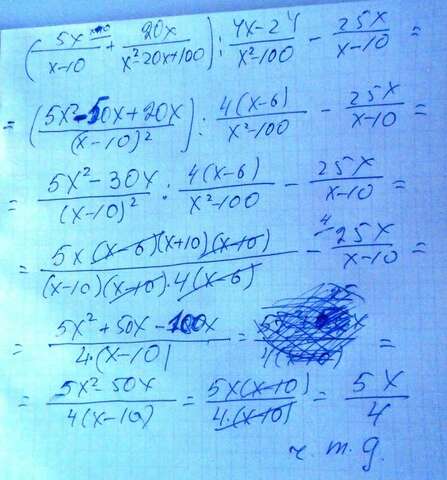 (5x/(x-10) + 20x/(x²-20x+100)) : (4x-24)/(x²-100) - 25x/(x-10) =
= ((5x²-50x+20x)/(x-10)²) : 4(x-6)/(x²-100) - 25x/(x-10) =
= (5x²-30x)/(x-10)² : 4(x-6)/(x²-100) - 25x/(x-10) =
= 5x(x-6)(x+10)(x-10)/((x-10)(x-10)·4(x-6)) - ⁴ 25x/(x-10) =
= (5x²+50x-100x)/(4·(x-10)) = =
= (5x²-50x)/(4(x-10)) = 5x(x-10)/(4·(x-10)) = 5x/4
ч. т. д.